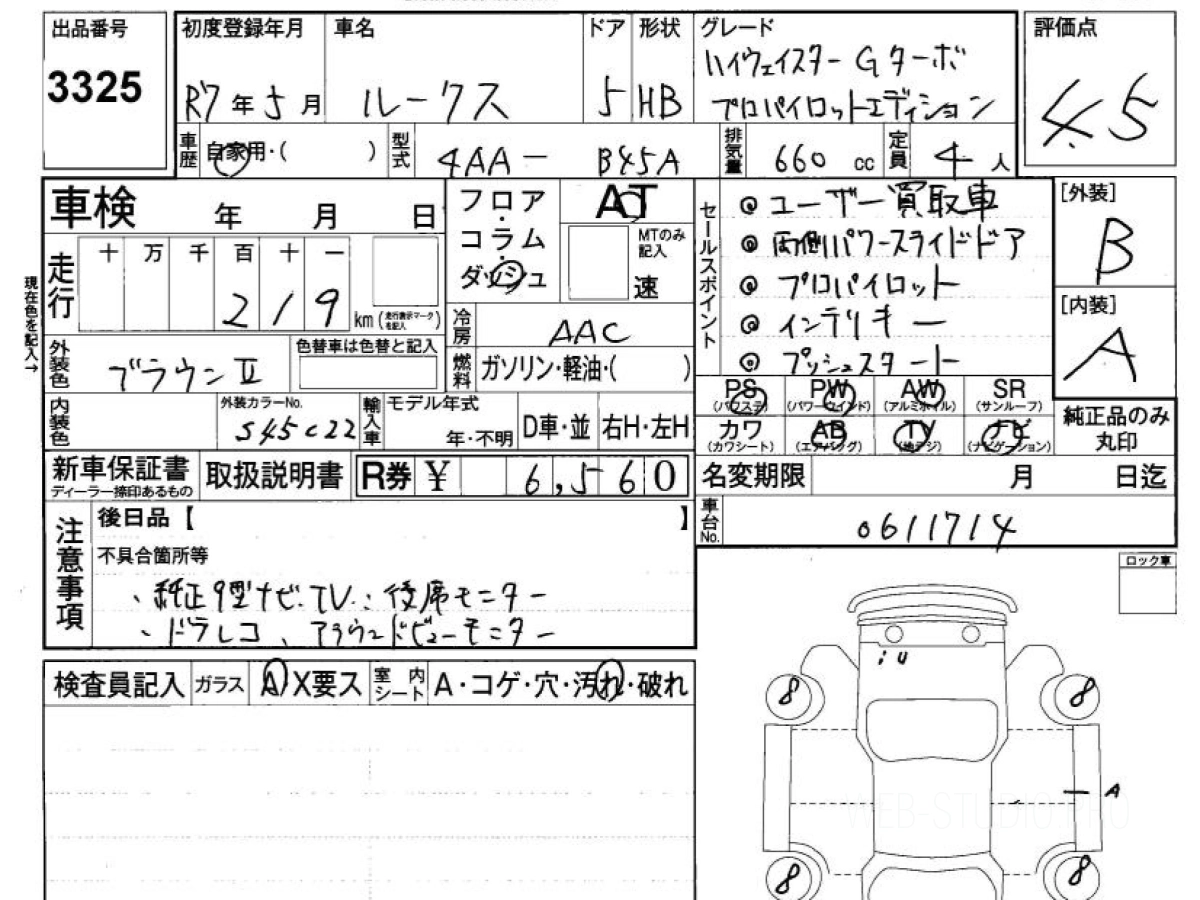 出品番号 初度登録年月 車名 ドア 形状 グレード 評価点
3325 R7年5月 ルークス 5 HB ハイウェイスター Gターボ
プロパイロットエディション
4.5
車歴 自家用・( ) 型式 4AA - B45A 排気量 660 cc 定員 4人
車検 年 月 日
走行 十 万 千 百 十 一
219 km (走行表示マークを記入)
現在色を記入→
外装色 ブラウンⅡ 色替車は色替と記入
内装色 外装カラーNo. S45C22 輸入車 モデル年式 年・不明 D車・並 右H・左H
フロア・コラム・ダッシュ AT MTのみ記入 速
冷房 AAC
燃料 ガソリン・軽油・( )
セールスポイント
◎ ユーザー買取車
◎ 両側パワースライドドア
◎ プロパイロット
◎ インテリキー
◎ プッシュスタート
[外装] B
[内装] A
PS (パワステ) PW (パワーウインド) AW (アルミホイル) SR (サンルーフ)
カワ (カワシート) AB (エアバック) TV (地デジ) ナビ (ナビゲーション)
純正品のみ丸印
新車保証書 ディーラー捺印あるもの 取扱説明書 R券 ¥ 6,560
名変期限 月 日迄
車台No. 0611714
注意事項 後日品【 】
不具合箇所等
・純正9型ナビ.TV.:後席モニター
・ドラレコ、アラウンドビューモニター
ロック車
検査員記入 ガラス A X要ス 室内シート A・コゲ・穴・汚れ・破れ
8 8
A
8 8
WEB-STUDIO.PRO